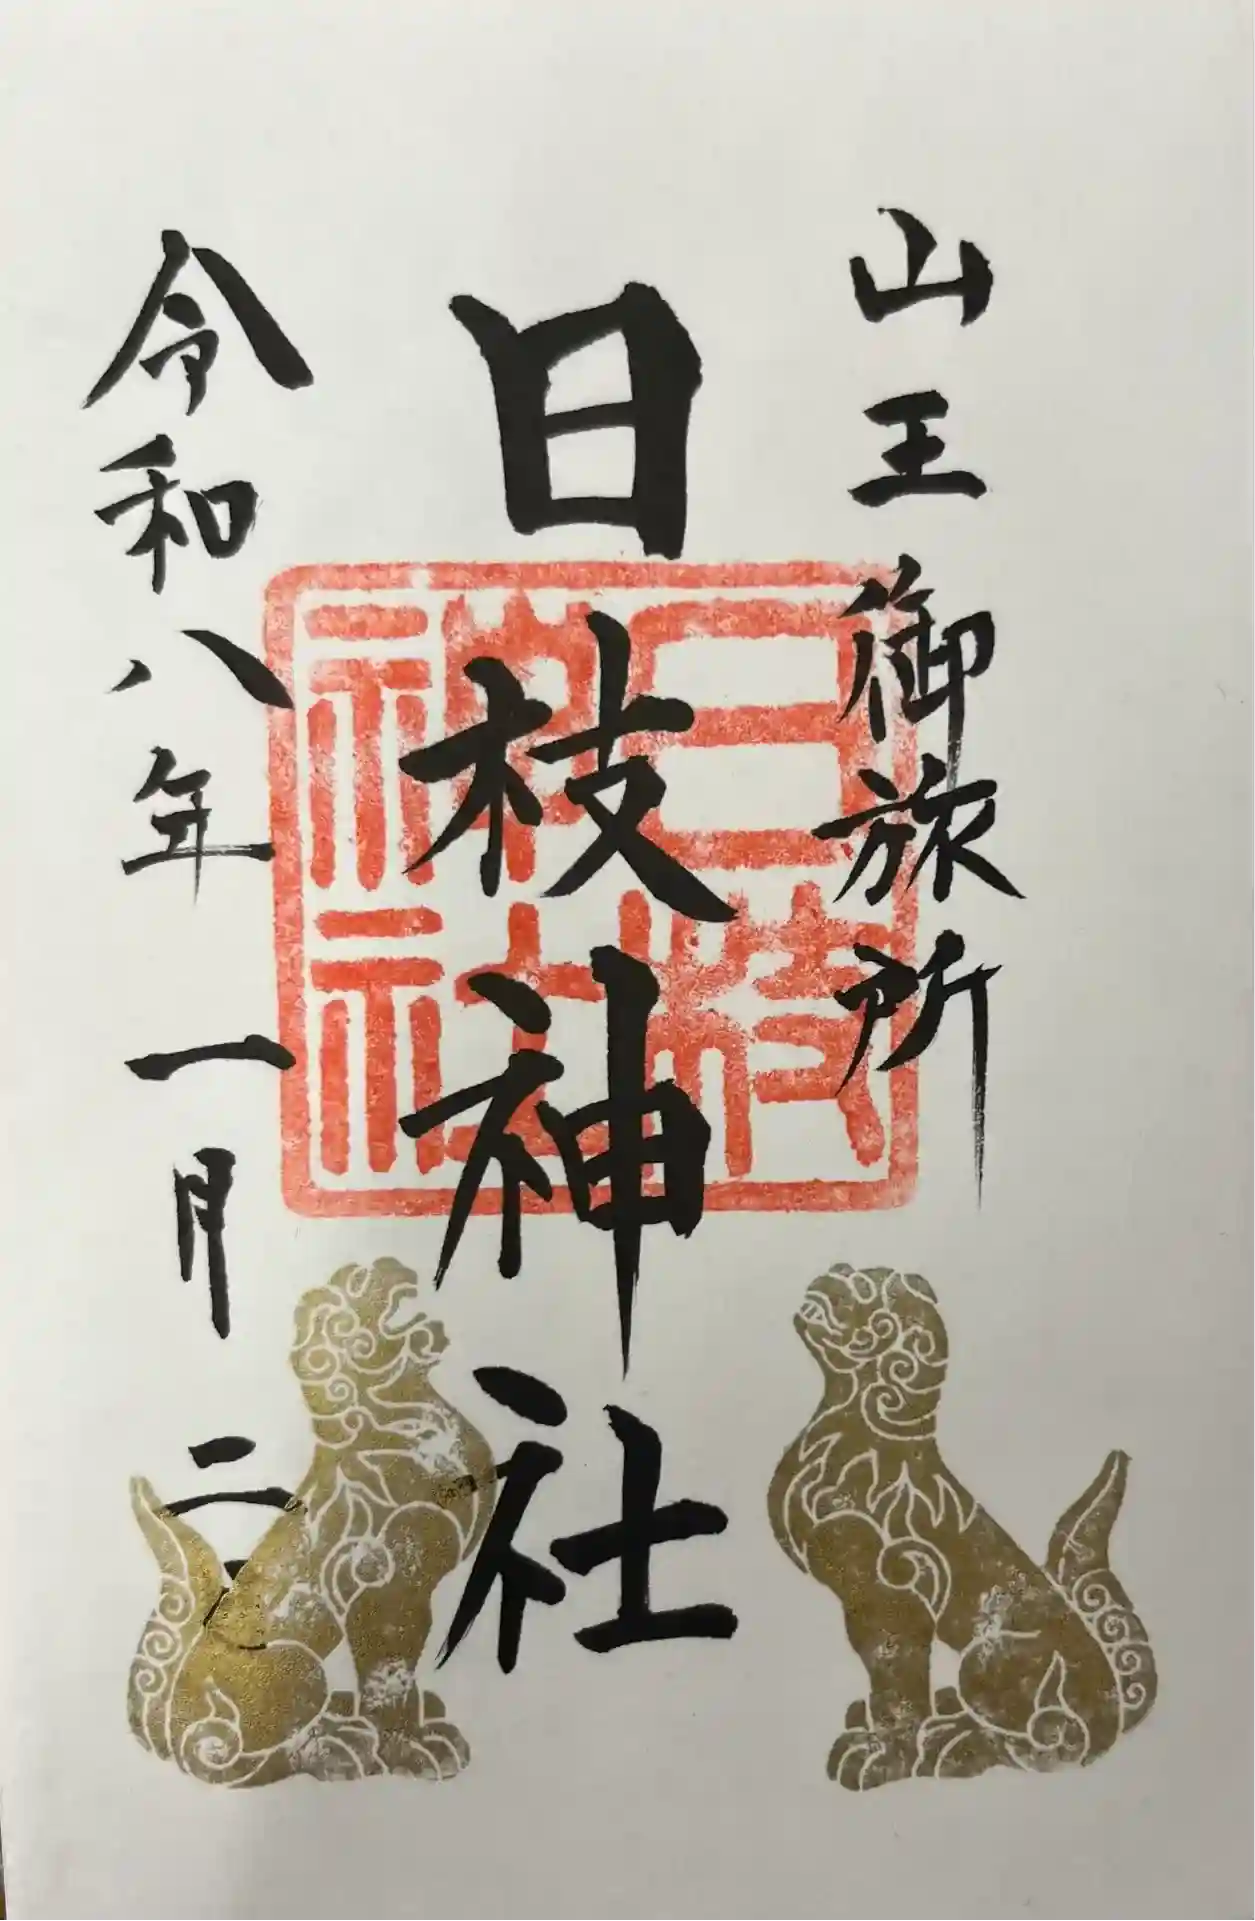 山王御旅所
日枝神社
日枝
神社
令和八年一月二